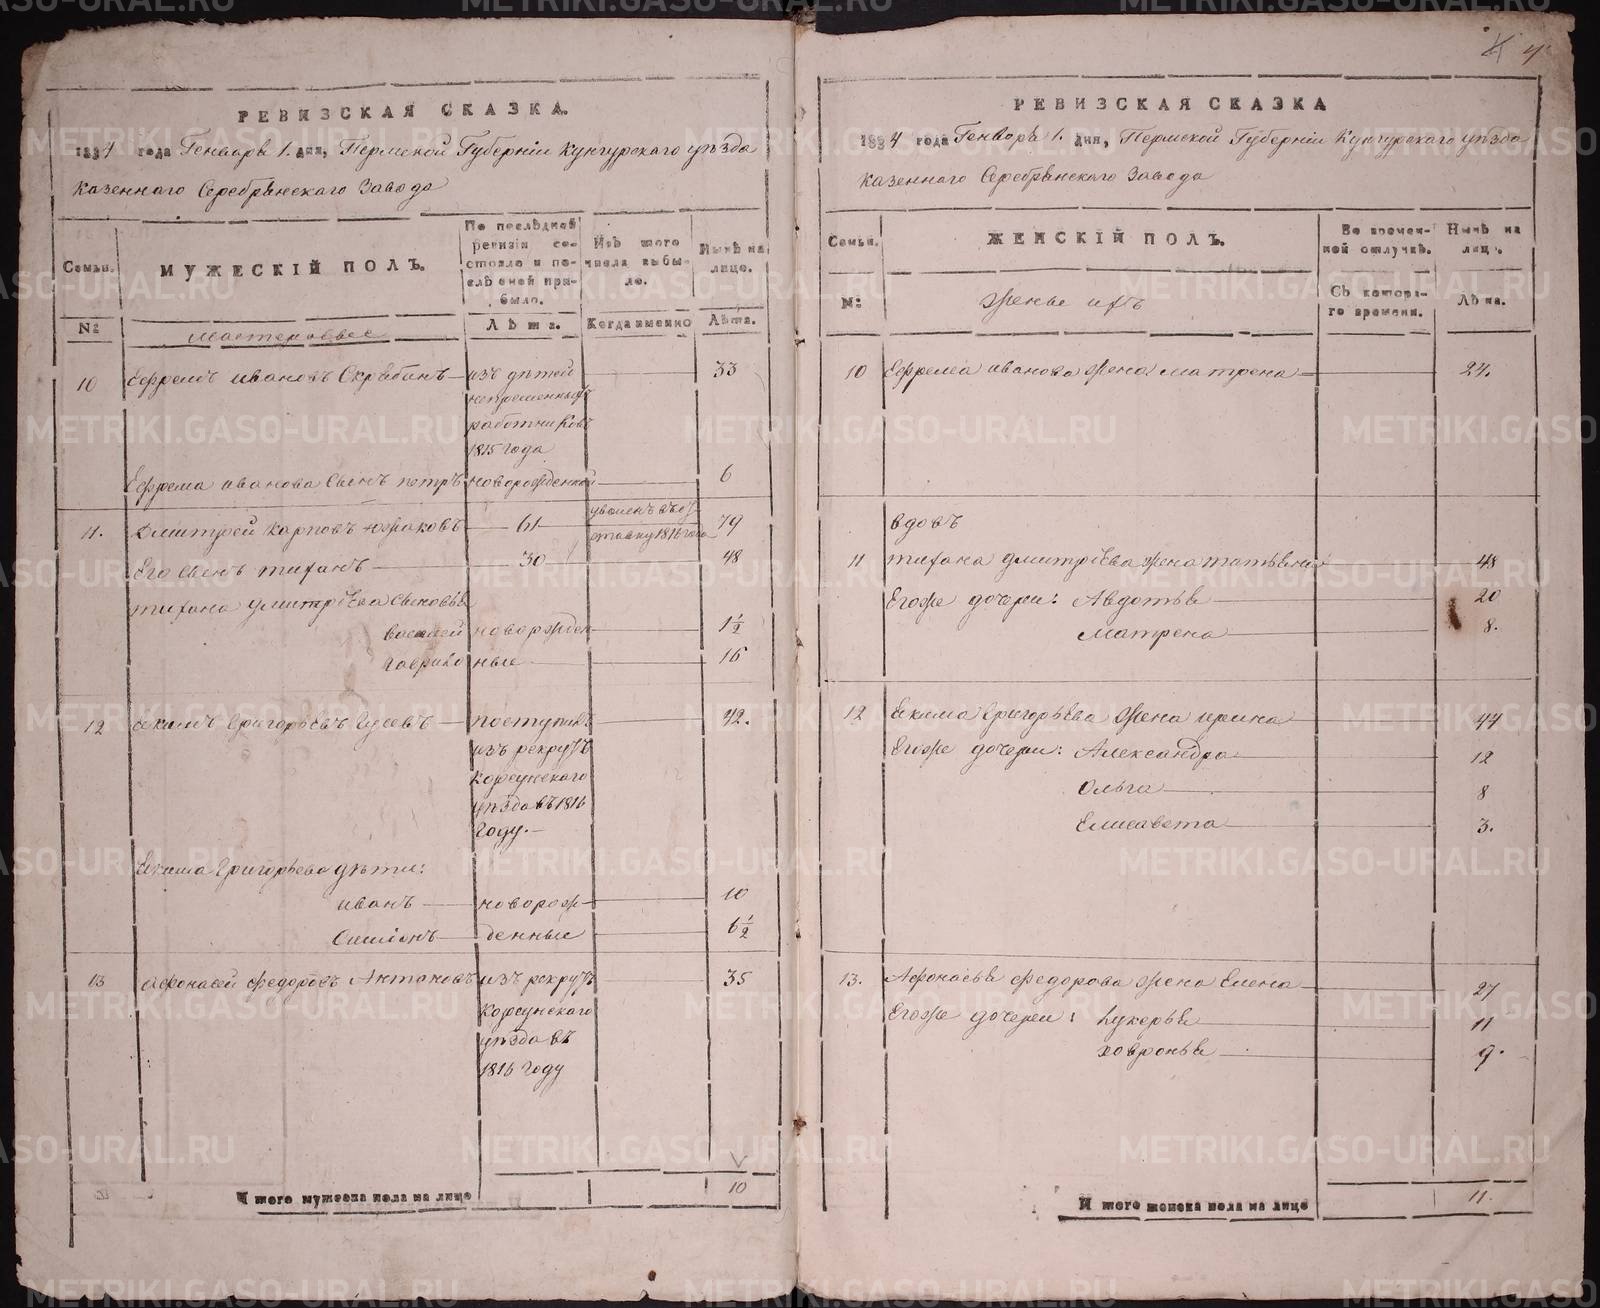 РЕВИЗСКАЯ СКАЗКА.
1834 года Генваря 1. дня, Пермской Губерніи Кунгурскаго уѣзда
Казеннаго Серебрянскаго Завода
Семьи.
МУЖЕСКІЙ ПОЛЪ.
По послѣдней ревизіи состояло и послѣ оной прибыло.
Изъ того числа выбыло.
Нынѣ на лице.
№
Мастеровые
Лѣта.
Когда именно
Лѣта.
10 Ефремъ ивановъ Скрябинъ изъ дѣтей 33
непременныхъ
работниковъ
1815 года
Ефрема иванова Сынъ петръ новорожденной 6
11. Дмитрей карповъ южаковъ 61 уволенъ въ от
ставку 1816 года 79
Его Сынъ тиханъ 30 48
тихана дмитріева Сыновья
василей новорожден 1 1/2
гаврило ные 16
12 екимъ Григорьевъ Гусевъ поступилъ 42.
изъ рекрутъ
Корсунскаго
уѣзда въ 1816
году.
Екима Григорьева дѣти:
иванъ новорож 10
Симіонъ денные 6 1/2
13 афонасей федоровъ Антоновъ изъ рекрутъ 35
Корсунскаго
уѣзда въ
1816 году
Итого мужеска пола на лице 10
4
РЕВИЗСКАЯ СКАЗКА
1834 года Генваря 1. дня, Пермской Губерніи Кунгурскаго уѣзда
Казеннаго Серебрянскаго Завода
Семьи.
ЖЕНСКІЙ ПОЛЪ.
Во временной отлучкѣ.
Нынѣ на лицо.
№:
Жены ихъ
Съ котораго времени.
Лѣта.
10 Ефрема иванова жена матрена 24.
вдовъ
11 тихана дмитріева жена татьяна 48
Егоже дочери: Авдотья 20
Матрена 8.
12 Екима Григорьева жена ирина 44
Егоже дочери: Александра 12
Ольга 8
Елисавета 3.
13. Афонасья федорова жена Елена 27
Егоже дочери: Лукерья 11
ховронья 9.
Итого женска пола на лице 11.
METRIKI.GASO-URAL.RU